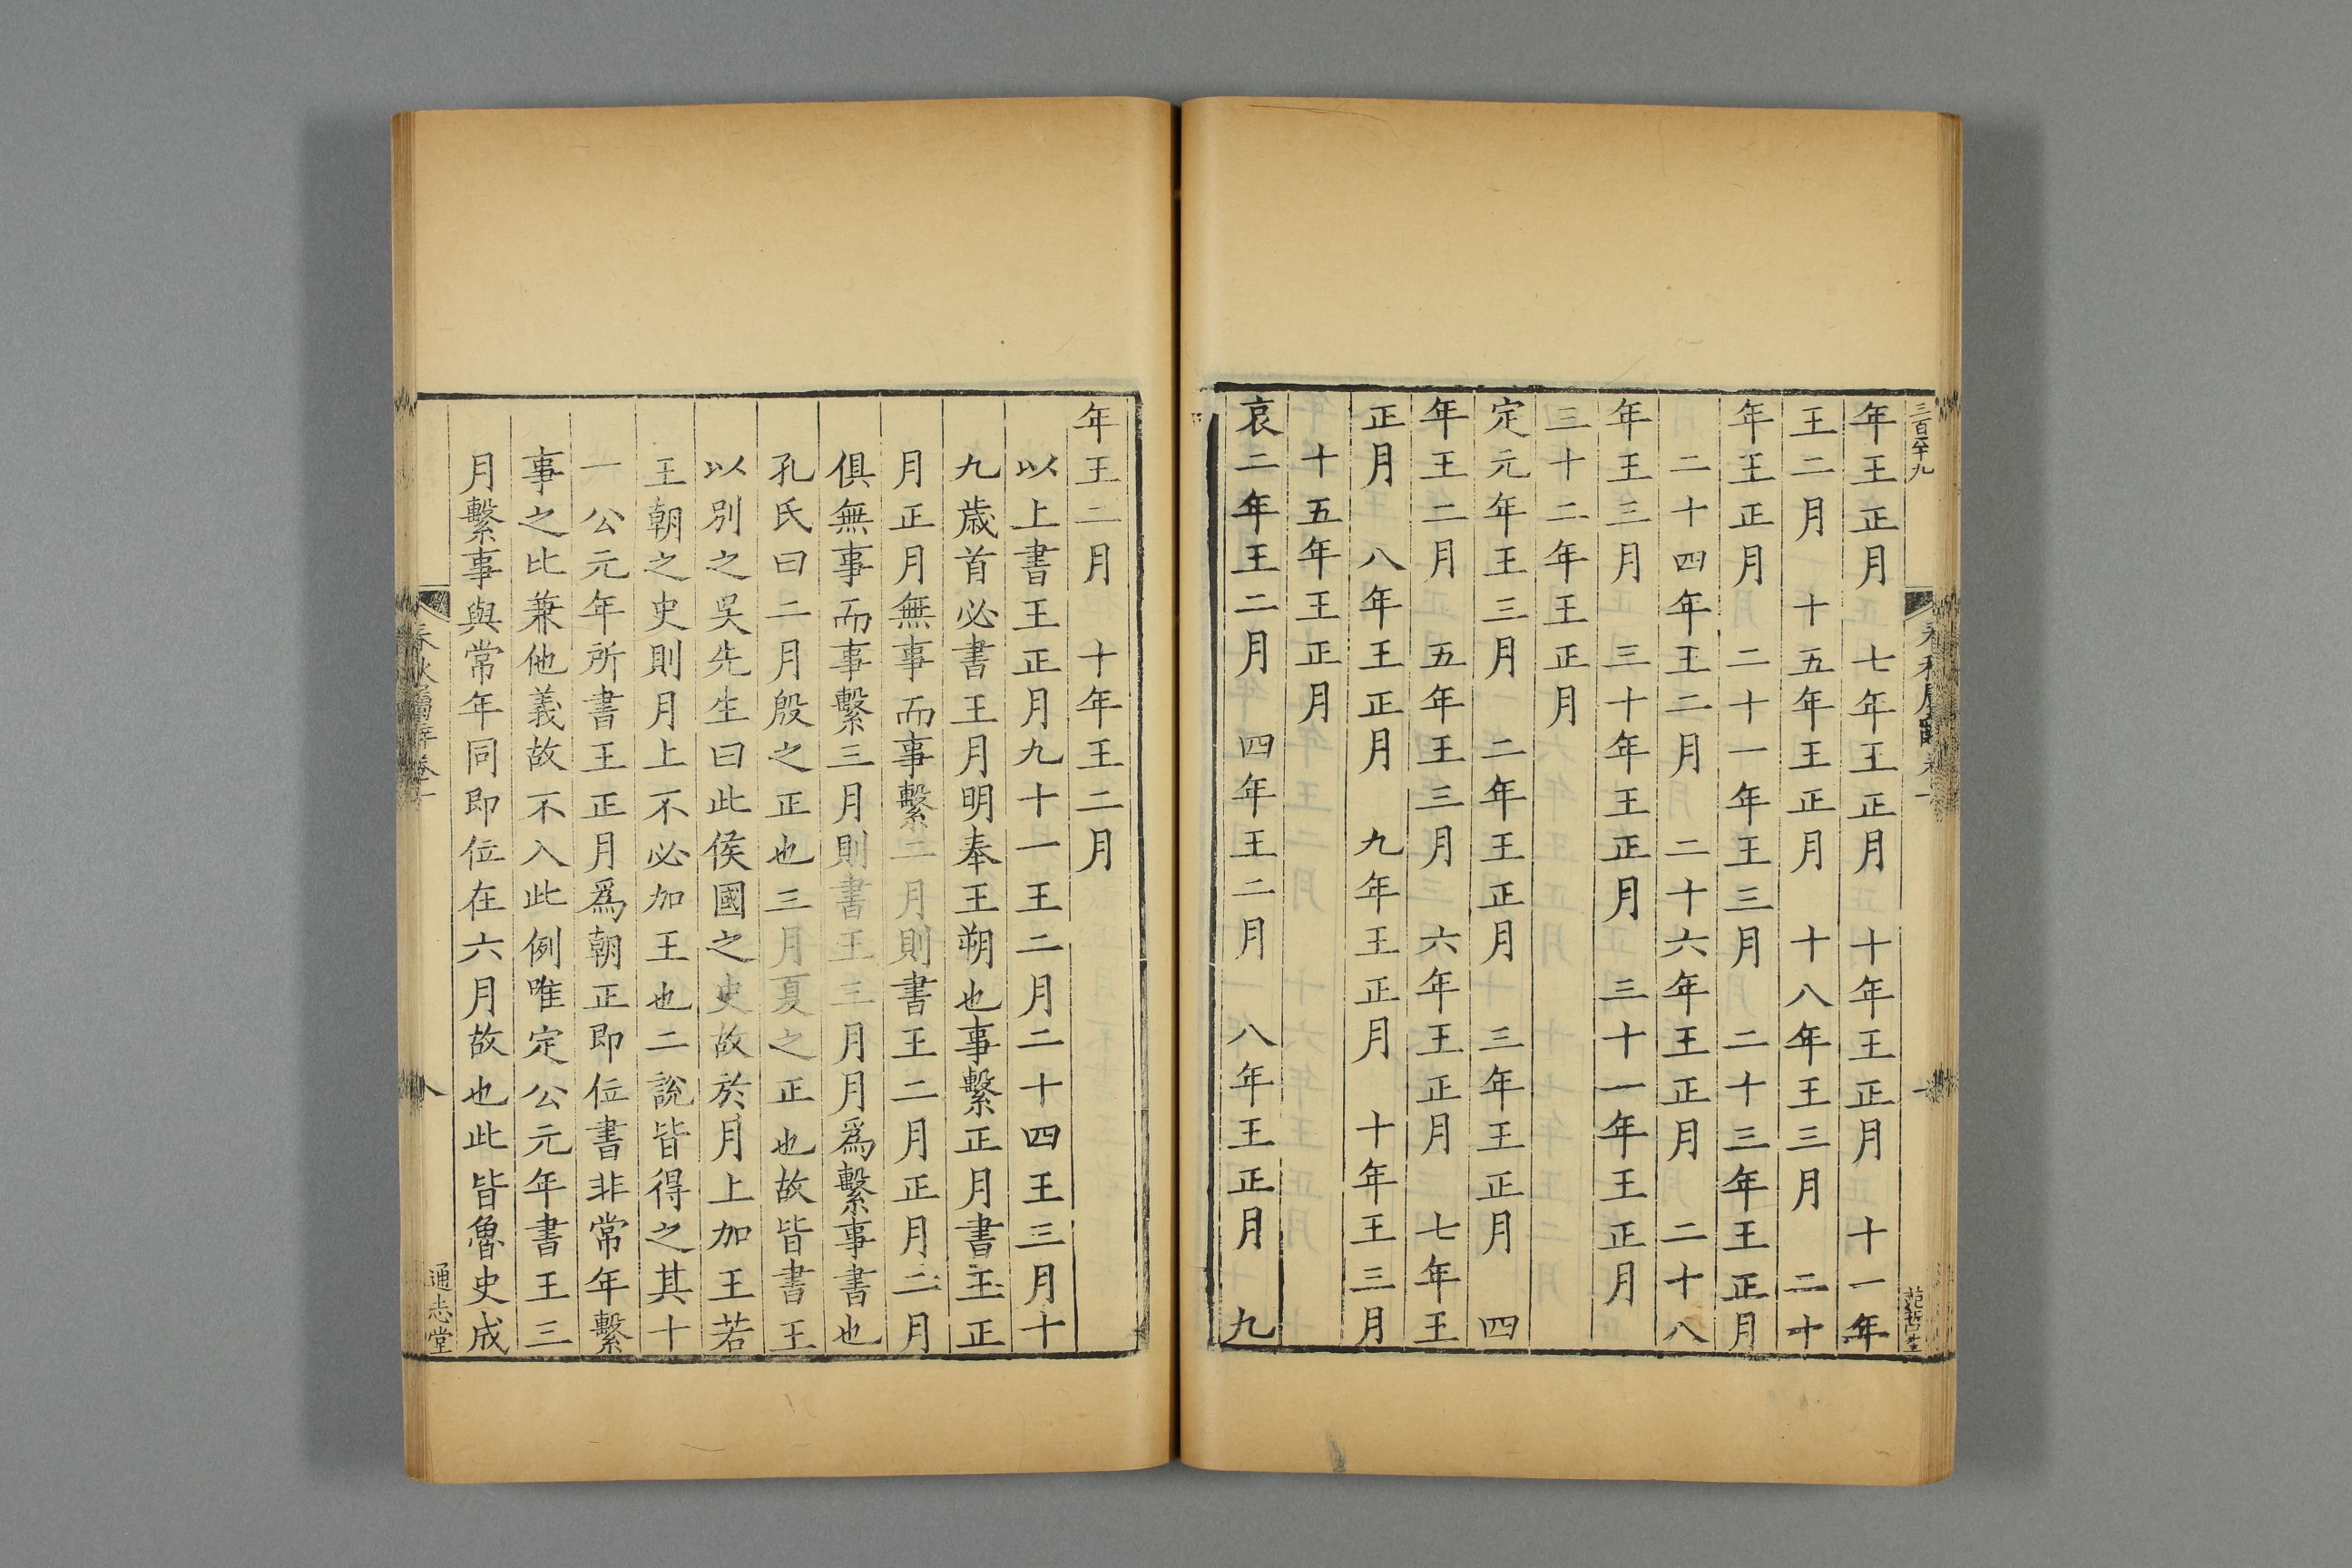 三百六十九
年王正月　七年王正月　十年王正月　十一年
王二月　十五年王正月　十八年王三月　二十
年王正月　二十一年王三月　二十三年王正月
二十四年王二月　二十六年王正月　二十八
年王三月　三十年王正月　三十一年王正月
三十二年王正月
定元年王三月　二年王正月　三年王正月　四
年王二月　五年王三月　六年王正月　七年王
正月　八年王正月　九年王正月　十年王三月
十五年王正月
哀二年王二月　四年王二月　八年王正月　九
年王二月　十年王二月
以上書王正月九十一王二月二十四王三月十
九歲首必書王月明奉王朔也事繫正月書王正
月正月無事而事繫二月則書王二月正月二月
俱無事而事繫三月則書王三月月爲繫事書也
孔氏曰二月殷之正也三月夏之正也故皆書王
以別之吳先生曰此侯國之史故於月上加王若
王朝之史則月上不必加王也二說皆得之其十
一公元年所書王正月爲朝正即位書非常年繫
事之比兼他義故不入此例唯定公元年書王三
月繫事與常年同即位在六月故也此皆魯史成
春秋屬辭卷一
八
通志堂